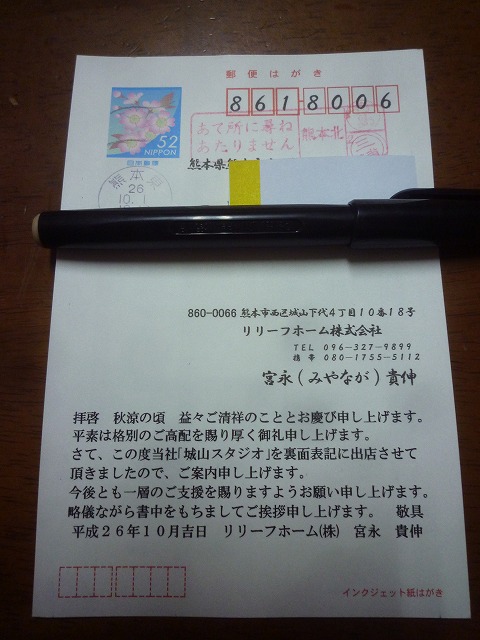 郵便はがき
8618006
52
NIPPON
日本郵便
あて所に尋ね
あたりません
熊本北
熊本県熊
熊本東
26
10.1
860-0066 熊本市西区城山下代4丁目10番18号
リリーフホーム株式会社
TEL 096-327-9899
携帯 080-1755-5112
宮永(みやなが)貴伸
拝啓 秋涼の頃 益々ご清祥のこととお慶び申し上げます。
平素は格別のご高配を賜り厚く御礼申し上げます。
さて、この度当社「城山スタジオ」を裏面表記に出店させて
頂きましたので、ご案内申し上げます。
今後とも一層のご支援を賜りますようお願い申し上げます。
略儀ながら書中をもちましてご挨拶申し上げます。 敬具
平成26年10月吉日 リリーフホーム(株) 宮永 貴伸
インクジェット紙はがき